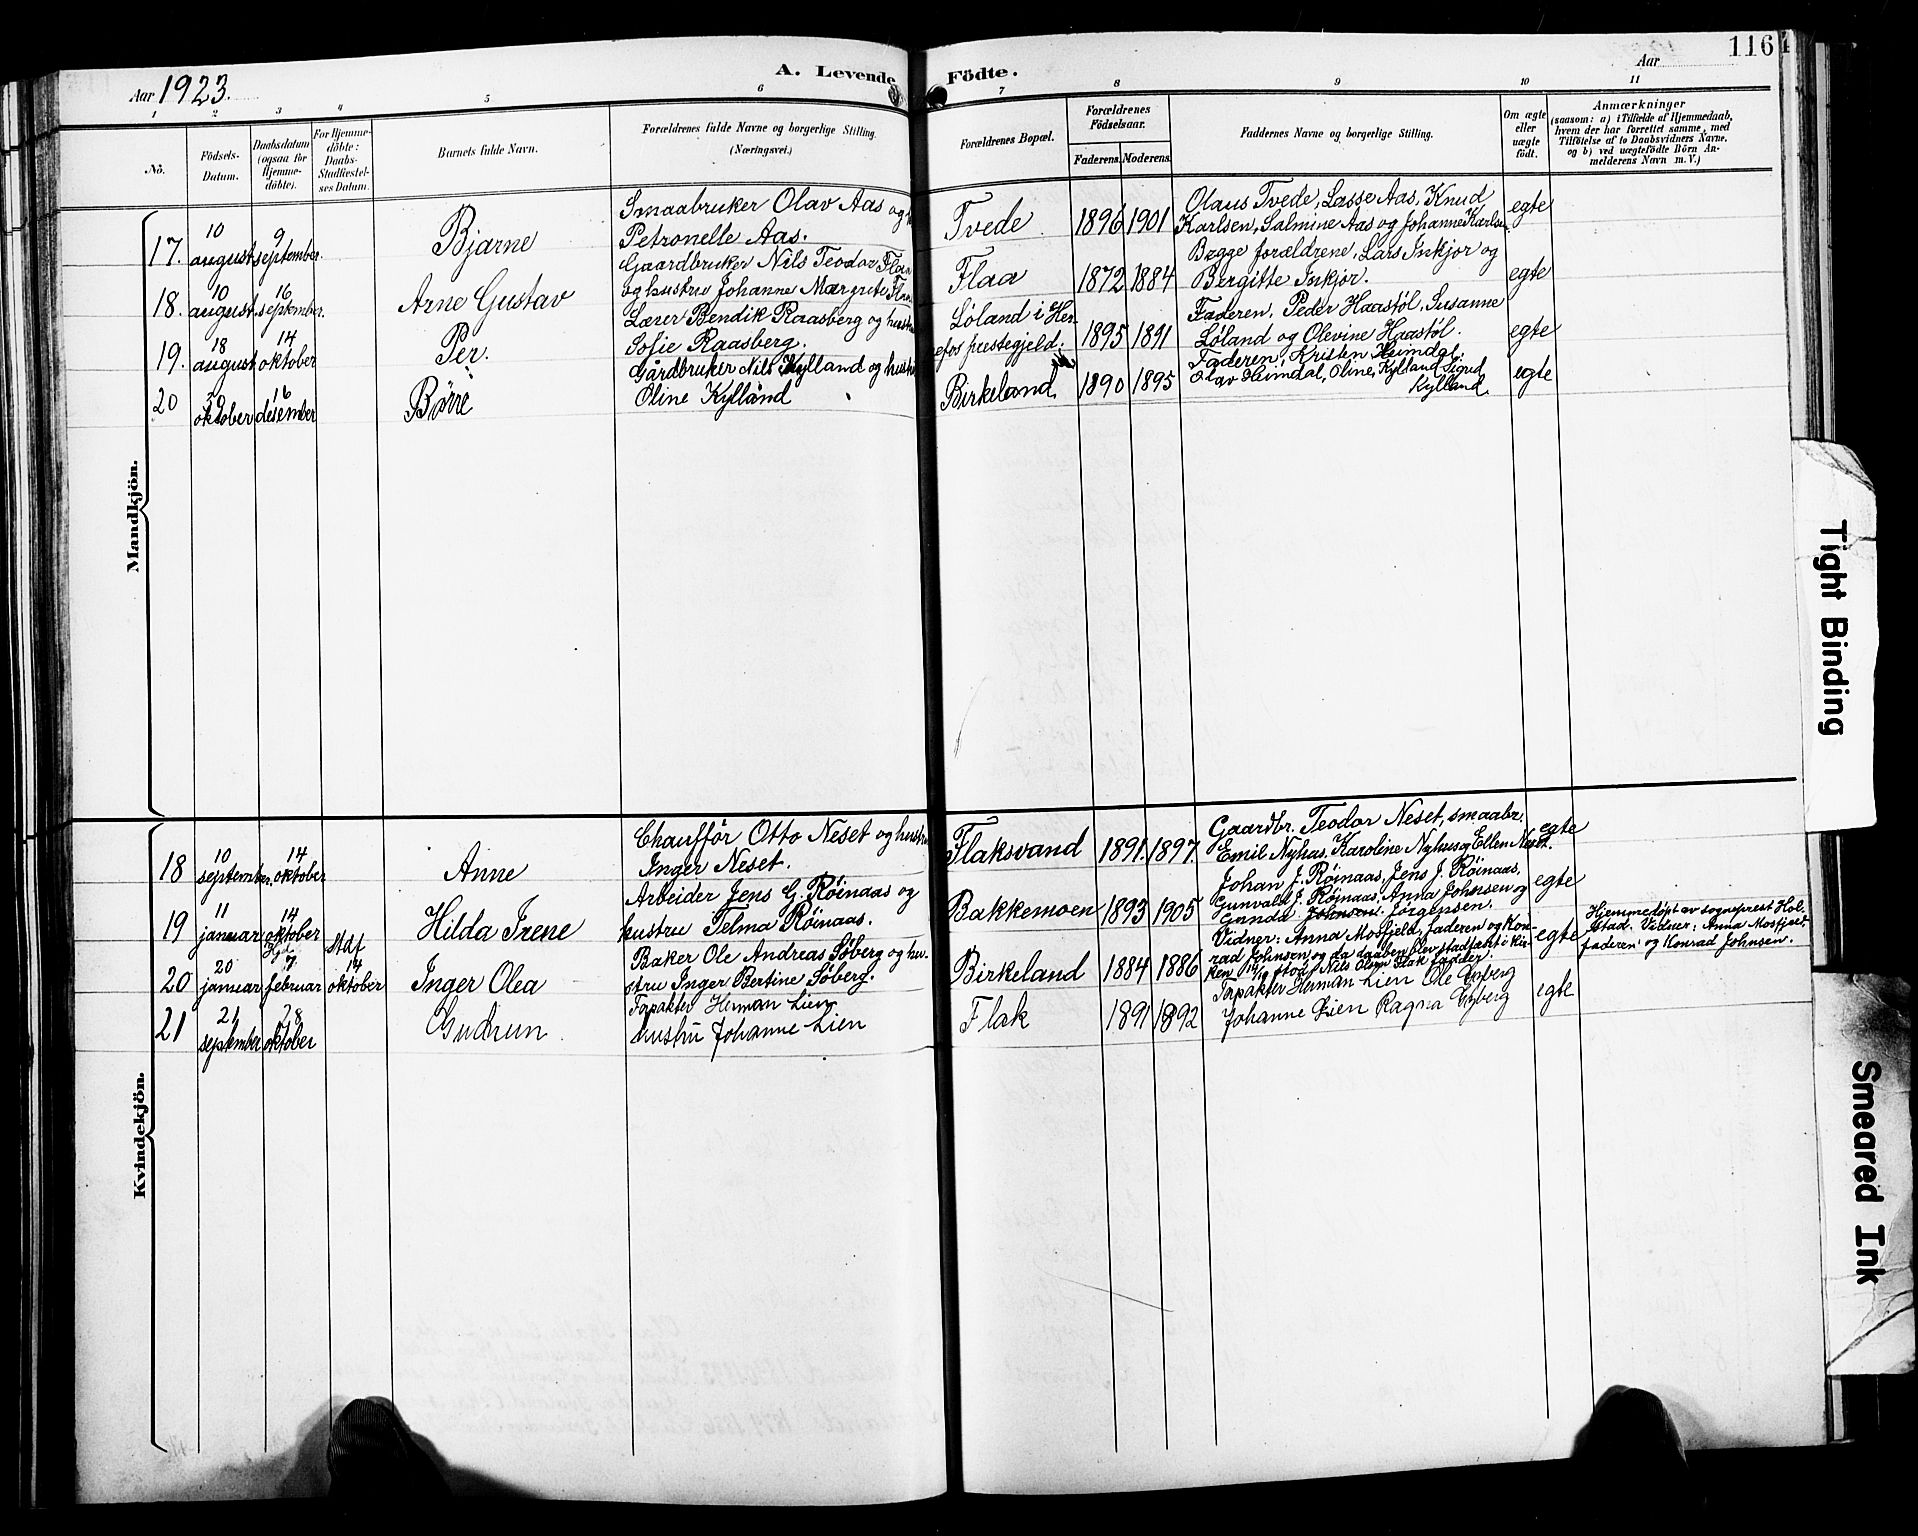 116
Aar 1923.
A. Levende Födte.
Aar
1 2 3 4 5 6 7 8 9 10 11
No.
Födsels-Datum.
Daabsdatum (ogsaa för Hjemme-döbte).
For Hjemme-döbte: Daabs-Stadfæstel-ses Datum.
Barnets fulde Navn.
Forældrenes fulde Navne og borgerlige Stilling. (Næringsvei.)
Forældrenes Bopæl.
Forældrenes Födselsaar.
Faderens. Moderens.
Faddernes Navne og borgerlige Stilling.
Om ægte eller uægte födt.
Anmærkninger
(saasom: a) i Tilfælde af Hjemmedaab,
hvem der har forrettet samme, med
Tilföielse af to Daabsvidners Navne,
og b) ved uægtefödte Börn An-
melderens Navn m. V.)
Mandkjön.
17. 10 august 9 september. Bjarne
Smaabruker Olav Aas og
Petronelle Aas.
Tvede 1896 1901
Olaus Tvede, Lasse Aas, Knud
Karlsen, Salmine Aas og Johanne Karlsen.
egte
18. 10 august. 16 september. Arne Gustav
Gaardbruker Nils Teodor Flaa
og hustru Johanne Margrete Flaa
Flaa 1872 1884
Begge forældrene, Lars Inkjor og
Bergitte Inkjor.
egte
19. 18 august 14 oktober Per.
Lærer Bendik Raasberg og hustru
Sofie Raasberg.
Löland i Her-
efos prestegjeld. 1895 1891
Faderen, Peder Haastöl, Susanne
Løland og Olevine Haastöl.
egte
20 20 oktober 16 desember Børre
Gårdbruker Nils Kylland og hustru
Oline Kylland
Birkeland 1890 1895
Faderen, Kristen Heimdal,
Olav Heimdal, Oline Kylland Sigrid
Kylland
egte
Kvindekjön.
18 10 september. 14 oktober Anne
Chaufför Otto Neset og hustru
Inger Neset.
Flaksvand 1891. 1897.
Gaardbr. Teodor Neset, smaabr.
Emil Nyhus, Karoline Nyhus og Ellen Neset.
egte
19 11 januar 14 oktober Hilda Irene
Arbeider Jens G. Röinaas og
hustru Telma Röinaas.
Bakkemoen 1893 1905
Johan J. Röinaas, Jens J. Röinaas,
Gunvald J. Röinaas, Anna Johnsen og
Gunda Johnsen. Jörgensen.
egte
20 20 januar Hjd 7 februar Stdf 14 oktober Inger Olea
Baker Ole Andreas Söberg og hu-
stru Inger Bertine Söberg.
Birkeland 1884 1886
Vidner: Anna Mosfjeld, faderen og Kon-
rad Johnsen, og da daaben blev stadfæst i kir-
ken 14/10 stod Nils Olsen Flak fadder.
egte
Hjemmedöpt av sogneprest Hol-
stad. Vidner: Anna Mosfjeld,
faderen og Konrad Johnsen.
21 21 september 28 oktober Gudrun
Forpakter Herman Lien
hustru Johanne Lien
Flak 1891 1892
Forpakter Herman Lien Ole Espberg
Johanne Lien Ragna
egte
Tight Binding
Smeared Ink